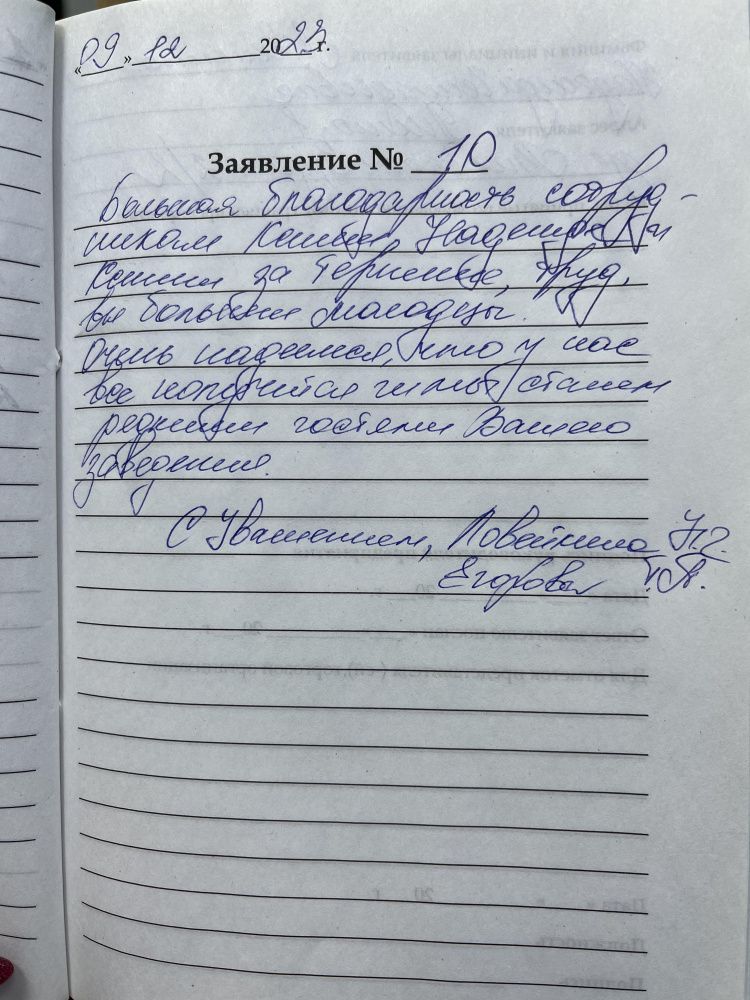 «09» 12 2023 г.
Заявление № 10
Большая благодарность сотруд-
никам Надежде и
за терпение, труд,
вы большие молодцы.
Очень надеемся, что у нас
все получится и мы станем
редкими гостями Вашего
заведения.
С Уважением, Повейкина Н.
Егорова